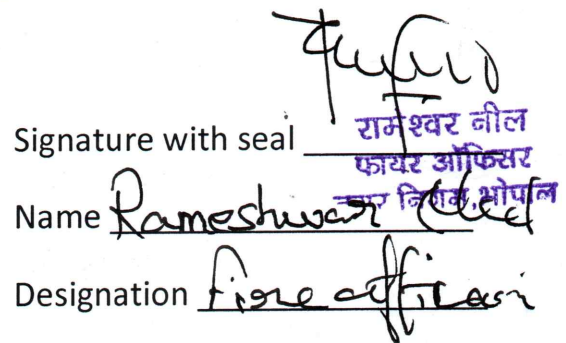 Signature with seal
रामेश्वर नील
फायर ऑफिसर
नगर निगम, भोपाल
Name Rameshwar
Designation Fire officer